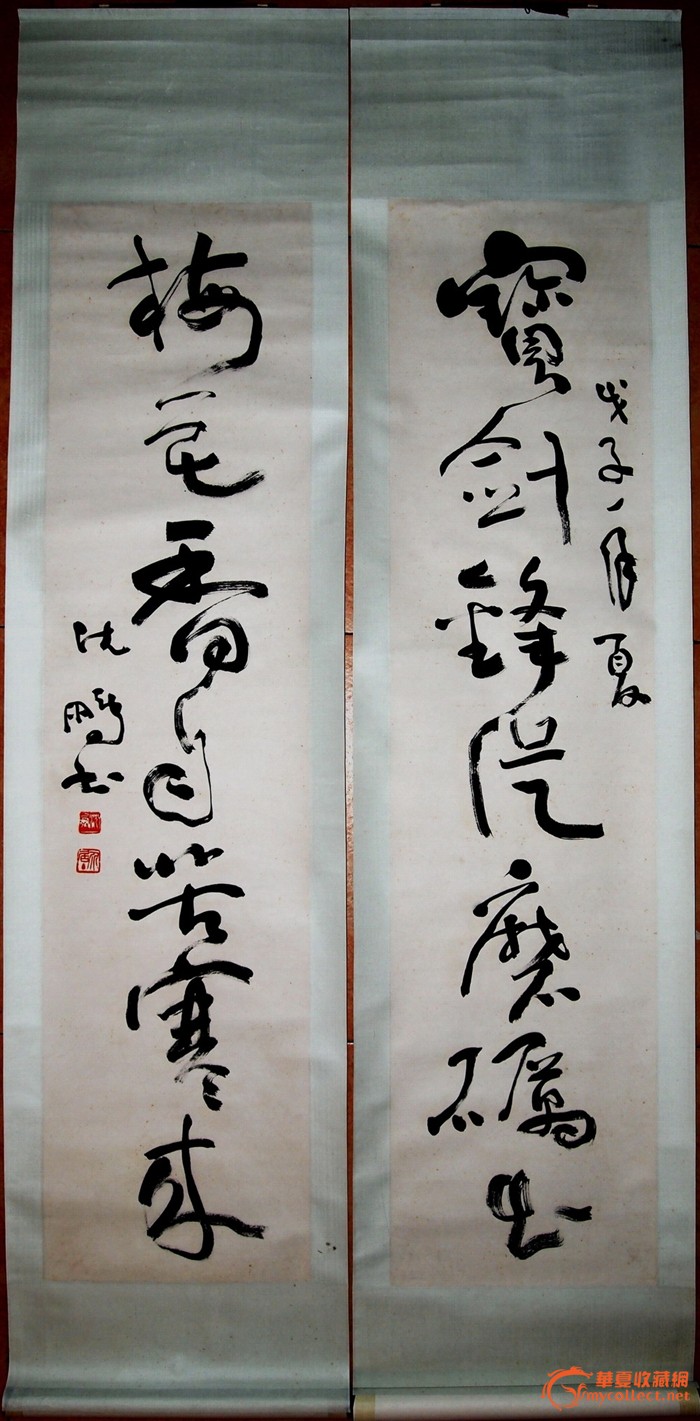 戊子年夏
寶劍鋒從磨礪出
梅花香自苦寒來
沈鵬书
華夏收藏網
mycollect.net